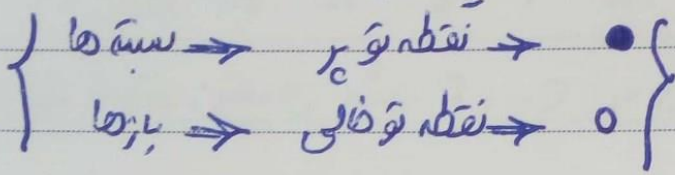 { بسته ها → نقطه تو پر → ● }
{ بازها → نقطه تو خالی → ○ }